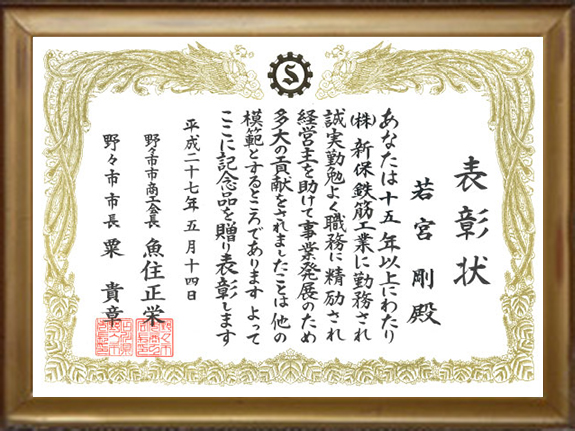 表彰状
若宮剛殿
あなたは十五年以上にわたり
(株)新保鉄筋工業に勤務され
誠実勤勉よく職務に精励され
経営主を助けて事業発展のため
多大の貢献をされましたことは他の
模範とするところであります よって
ここに記念品を贈り表彰します
平成二十七年五月十四日
野々市市商工会長 魚住正栄
野々市市長 粟貴章